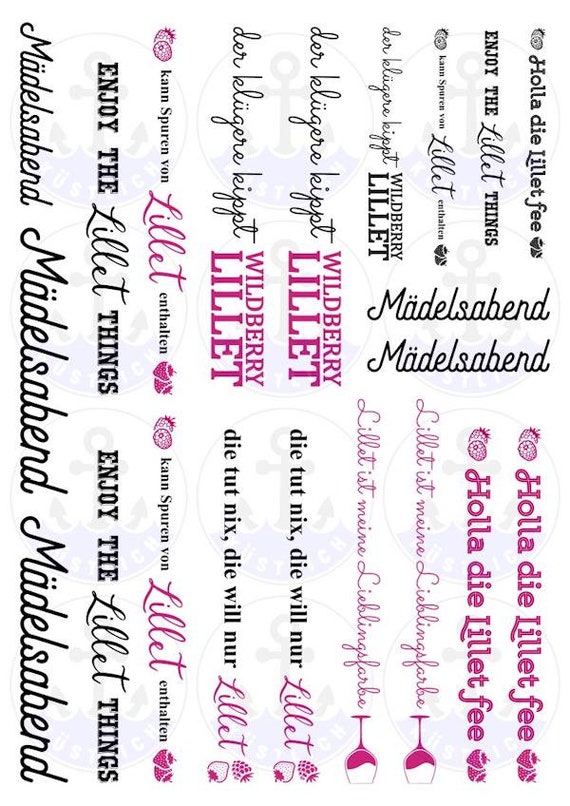 Mädelsabend
Mädelsabend
Mädelsabend
ENJOY THE Lillet THINGS
ENJOY THE Lillet THINGS
kann Spuren von Lillet enthalten
kann Spuren von Lillet enthalten
der klügere kippt
WILDBERRY
LILLET
der klügere kippt
WILDBERRY
LILLET
der klügere kippt
WILDBERRY
LILLET
kann Spuren von Lillet enthalten
ENJOY THE Lillet THINGS
Holla die Lillet fee
Mädelsabend
Mädelsabend
die tut nix, die will nur Lillet
die tut nix, die will nur Lillet
Lillet ist meine Lieblingsfarbe
Lillet ist meine Lieblingsfarbe
Holla die Lillet fee
Holla die Lillet fee